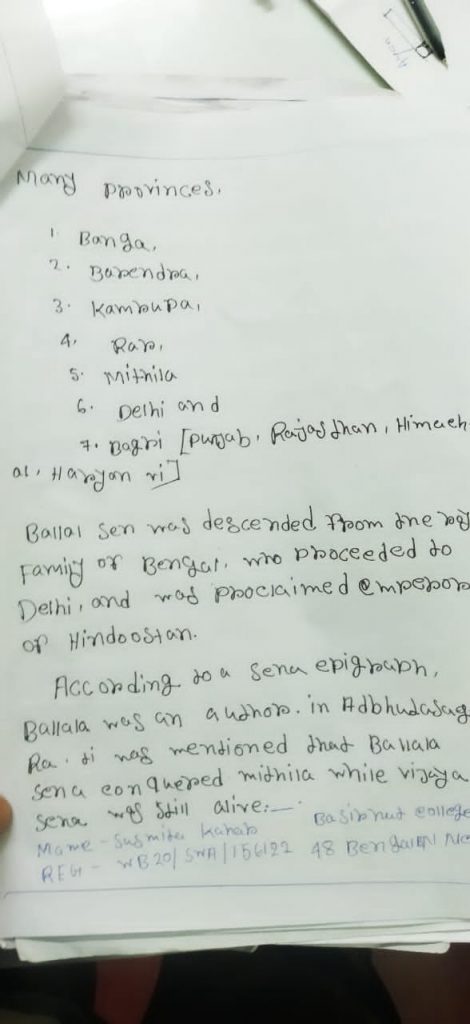 Many provinces.
1. Banga,
2. Barendra,
3. Kamrupa,
4. Rar,
5. Mithila
6. Delhi and
7. Bagri [Punjab, Rajasthan, Himach
al, Haryan vi]
Ballal sen was descended from the
Family of Bengal, who proceeded to
Delhi, and was proclaimed emperor
of Hindoostan.
According to a sena epigraph,
Ballala was an author. in Adbhutasag
Ra. ti was mentioned that Ballala
sena conquered mithila while vijaya
sena was still alive:—
Name - Susmita Kahar Basirhut College
REG - WB20/SWA/156122 48 Bengal EN NC